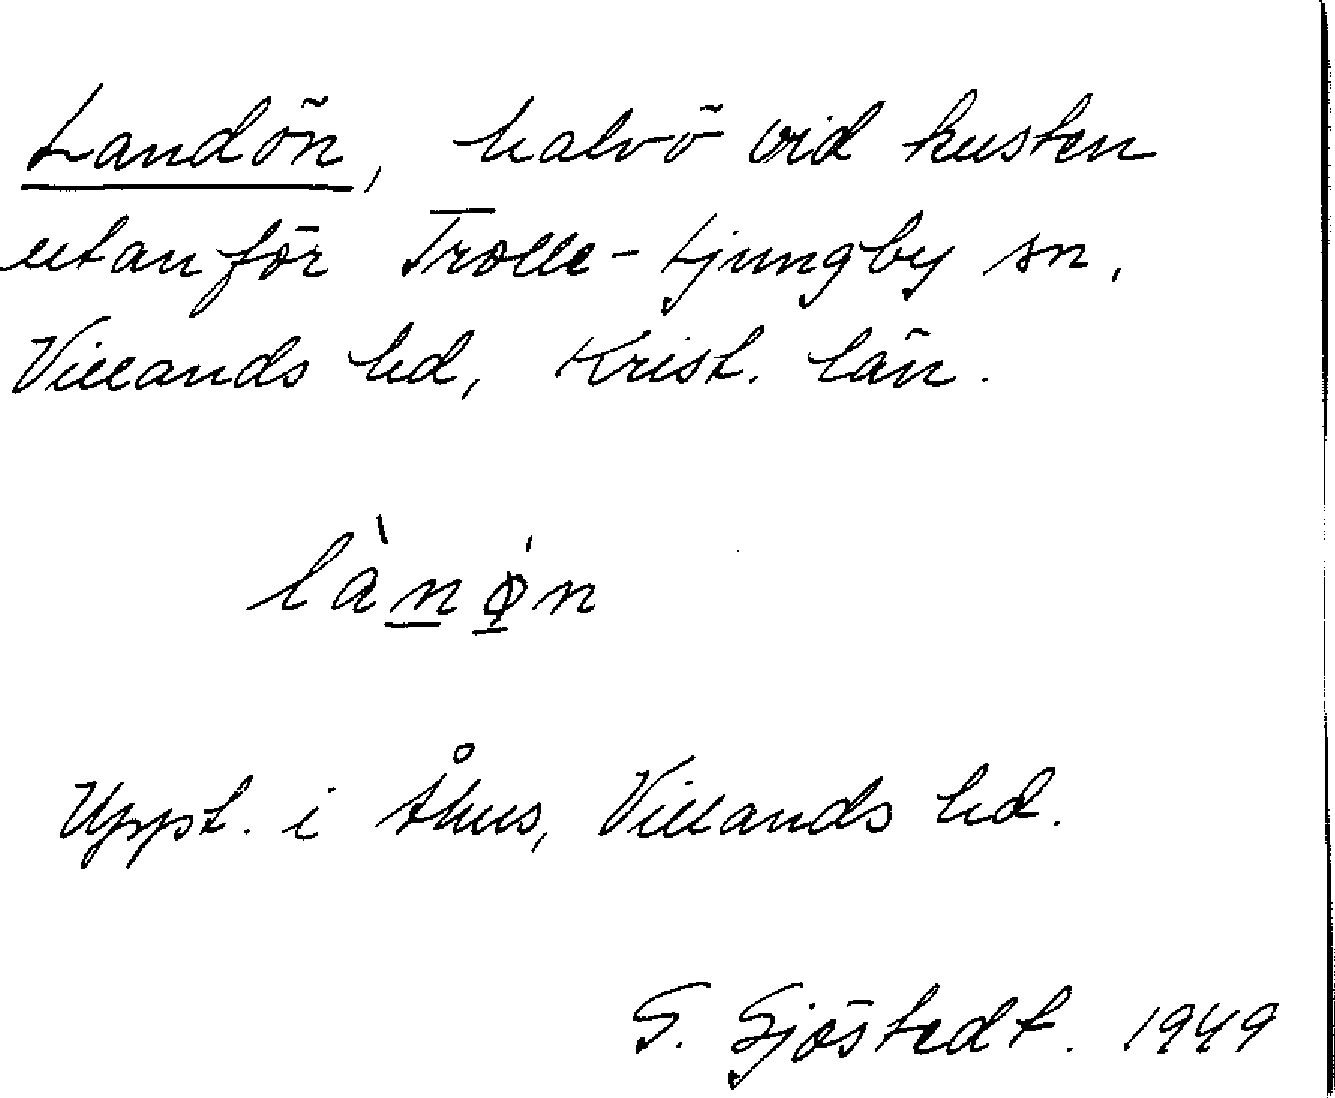 Landön, halvö vid kusten
utanför Trolle-Ljungby sn,
Villands hd, Krist. län.
là̱nǿ̱n
Uppt. i Åhus, Villands hd.
G. Sjöstedt. 1949